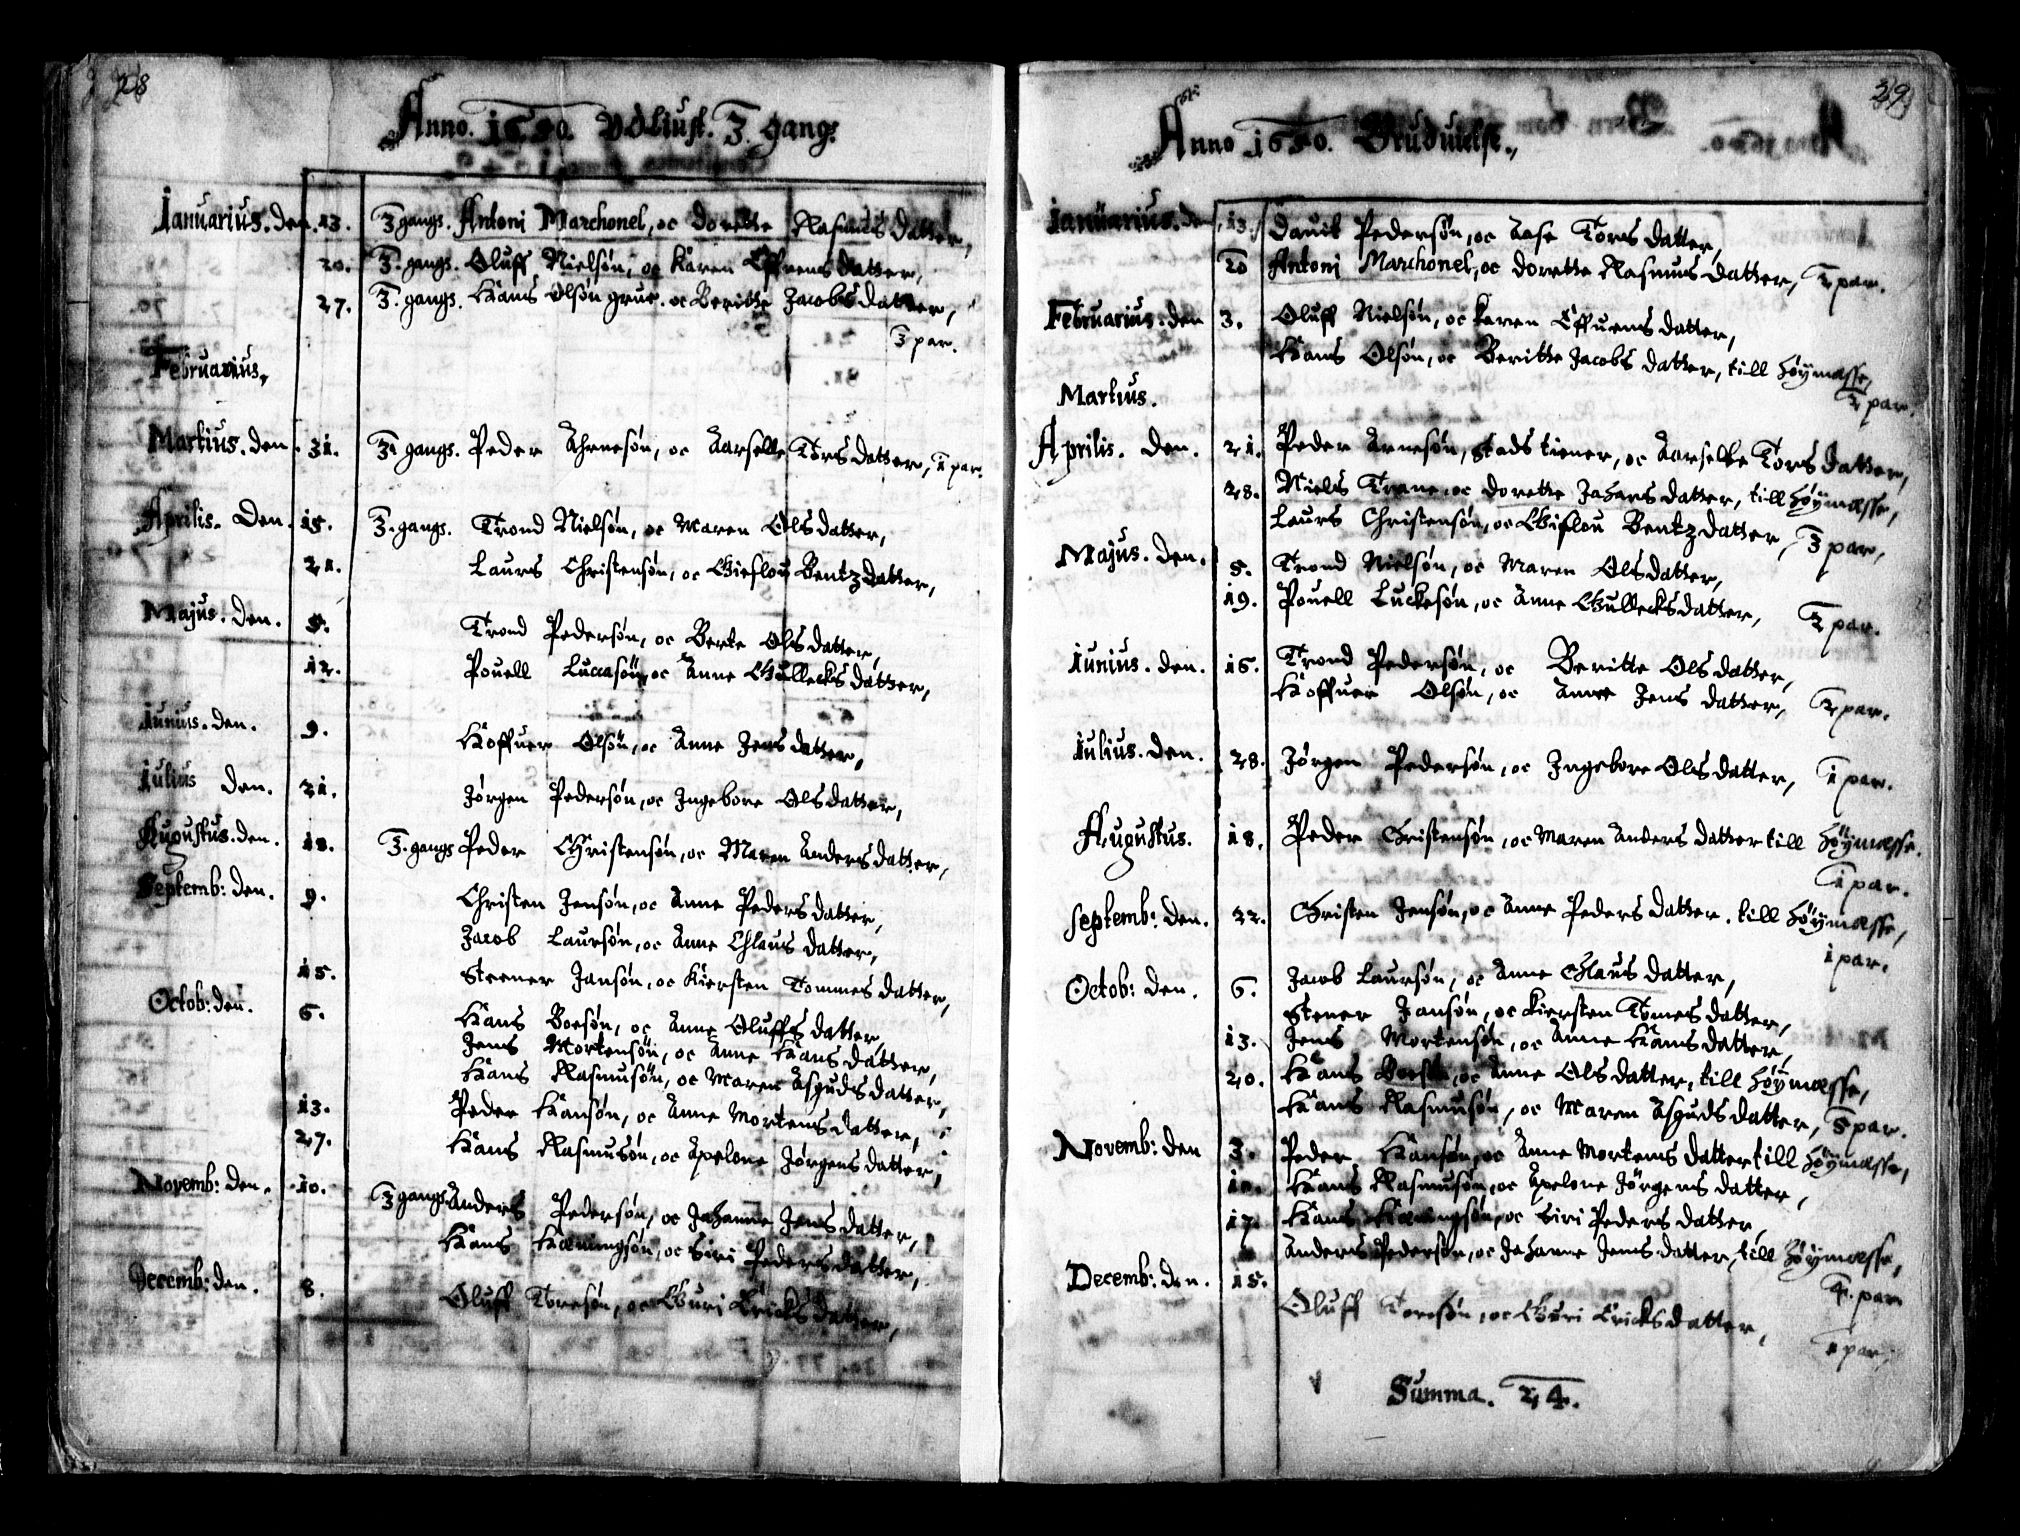 28
Anno. 1650. Vdliust. 3. gang:
Ianuarius. den. 13. 3 gangs. Antoni Marchonel, oc Dorette Rasmus datter,
20. 3. gangs. Oluff Nielsøn, oc Karen Effuens datter,
27. 3. gangs. Hans Olsøn grue. oc Beritte Jacobs datter,
3 par.
Februarius,
Martius. den. 31. 3 gangs. Peder Ahrnesøn, oc Aarselle Tors datter, 1 par.
Aprilis. Den. 15. 3. gangs. Trond Nielsøn, oc Maren Ols datter,
21. Laurs Christensøn, oc Gieflou Bentz datter,
Majus. den. 5. Trond Pedersøn, oc Berte Ols datter,
12. Pouell Luccasøn, oc Anne Gullecks datter,
Iunius. den. 9. Hoffuer Olsøn, oc Anne Jens datter,
Iulius den. 21. Jørgen Pedersøn, oc Ingebore Ols datter,
Augustus. den. 18. 3. gangs Peder Christensøn, oc Maren Anders datter,
Septemb: den. 9. Christen Jensøn, oc Anne Peders datter,
Jacob Laursøn, oc Anne Chlaus datter,
15. Steener Jansøn, oc Kiersten Tommes datter,
Octob: den. 6. Hans Boesøn, oc Anne Oluffs datter,
Jens Mortensøn, oc Anne Hans datter,
Hans Rasmusøn, oc Maren Asguds datter,
13. Peder Hansøn, oc Anne Mortens datter,
27. Hans Rasmusøn, oc Apelone Jørgens datter,
Novemb: den. 10. 3 gangs Anders Pedersøn, oc Johanne Jens datter,
Hans Hæningsøn, oc Siri Peders datter,
Decemb: den. 8. Oluff Toresøn, oc Guri Ericks datter,
29
Anno 1650. Bruduielse,
Ianuarius. den 13. Dauit Pedersøn, oc Aase Tors datter,
20 Antoni Marchonel, oc Dorette Rasmus datter, 2 par.
Februarius. den 3. Oluff Nielsøn, oc Karen Effuens datter,
Hans Olsøn, oc Beritte Jacobs datter, till Høymesse,
2 par.
Martius.
Aprilis. den. 21. Peder Arnesøn, Stads tiener, oc Aarselle Tors datter,
28. Niels Trane, oc Dorette Johans datter, till Høymesse,
Laurs Christensøn, oc Gieflou Bentz datter, 3 par,
Majus. den. 5. Trond Nielsøn, oc Maren Ols datter,
19. Pouell Luckesøn, oc Anne Gullecks datter, 2 par.
Iunius. den. 16. Trond Pedersøn, oc Beritte Ols datter,
Hoffuer Olsøn, oc Anne Jens datter, 2 par.
Iulius. den. 28. Jørgen Pedersøn, oc Ingebore Ols datter, 1 par.
Augustus. 18. Peder Christensøn, oc Maren Anders datter till Høymesse.
1 par.
Septemb: den. 22. Christen Jensøn, oc Anne Peders datter. till Høymesse,
1 par.
Octob: den. 6. Jacob Laursøn, oc Anne Chlaus datter,
Stener Jansøn, oc Kiersten Tomes datter,
13. Jens Mortensøn, oc Anne Hans datter,
20. Hans Boesøn, oc Anne Ols datter, till Høymesse,
Hans Rasmusøn, oc Maren Asguds datter, 5 par.
Novemb: den 3. Peder Hansøn, oc Anne Mortens datter till Høymesse,
10. Hans Rasmusøn, oc Apelone Jørgens datter,
17. Hans Hæningsøn, oc Siri Peders datter,
Anders Pedersøn, oc Johanne Jens datter, till Høymesse,
4. par
Decemb: den. 15. Oluff Toresøn, oc Guri Ericks datter,
1 par,
Summa. 24.